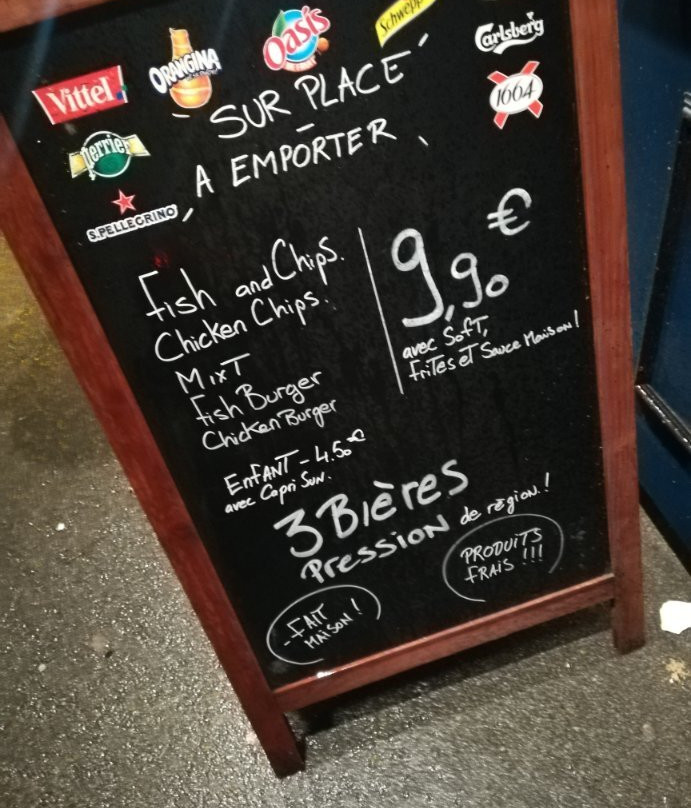 Vittel
ORANGINA
Oasis
Schwepp
Carlsberg
Perrier
1664
S.PELLEGRINO
SUR PLACE
-
A EMPORTER
Fish and Chips.
Chicken Chips.
MixT
Fish Burger
Chicken Burger
9,90€
avec SofT,
Frites eT Sauce Maison!
ENFANT - 4.50€
avec Capri Sun.
3 Bières
PRESSION de région!
PRODUITS
FRAIS !!!
-FAIT
MAISON!